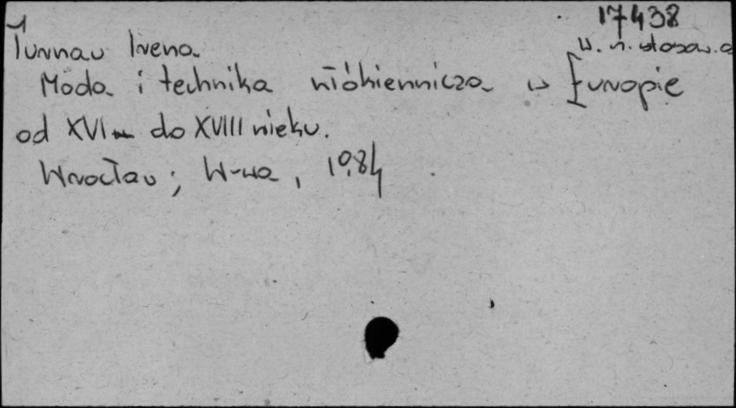 17438
Turnau Irena W. n. stosow.
Moda i technika włókiennicza w Europie
od XVI w do XVIII wieku.
Wrocław; W-wa, 1984